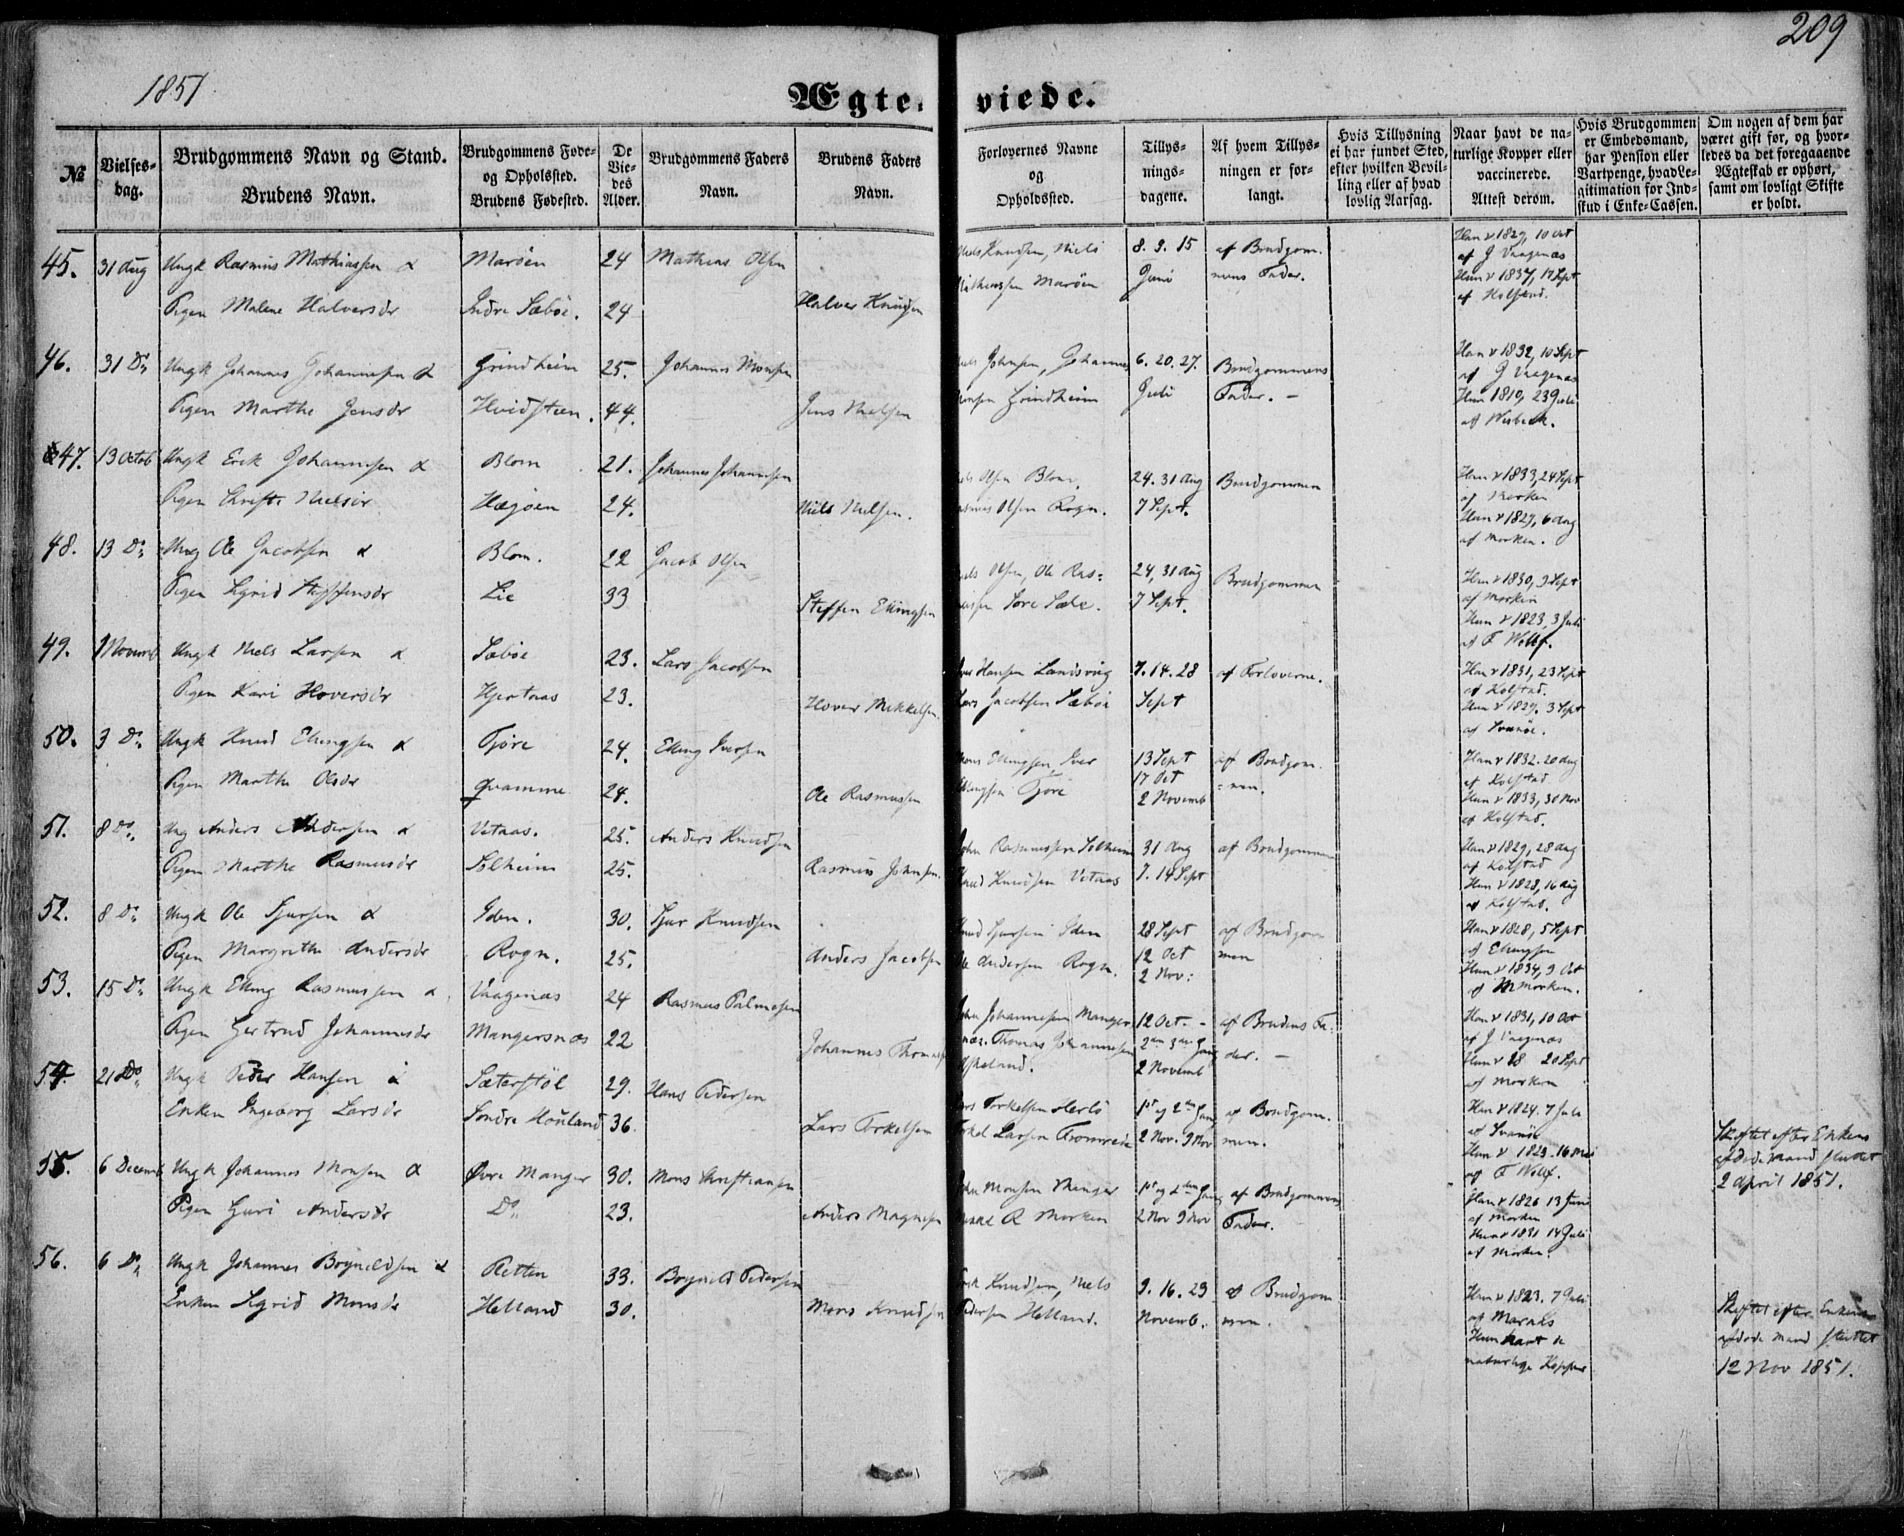 209
1851
Ægteviede.
No
Vielses-
dag.
Brudgommens Navn og Stand.
Brudens Navn.
Brudgommens Føde-
og Opholdssted.
Brudens Fødested.
De
Vie-
des
Alder.
Brudgommens Faders
Navn.
Brudens Faders
Navn.
Forlovernes Navne
og
Opholdssted.
Tillys-
nings-
dagene.
Af hvem Tillys-
ningen er for-
langt.
Hvis Tillysning
ei har fundet Sted,
efter hvilken Bevil-
ling eller af hvad
lovlig Aarsag.
Naar havt de na-
turlige Kopper eller
vaccinerede.
Attest derom.
Hvis Brudgommen
er Embedsmand,
har Pension eller
Vartpenge, hvad Le-
gitimation for Ind-
skud i Enke-Cassen.
Om nogen af dem har
været gift før, og hvor-
ledes da det foregaaende
Ægteskab er ophørt,
samt om lovligt Skifte
er holdt.
45. 31 Aug Ungk Rasmus Mathiassen & Marøen 24 Mathias Olsen Niels Knudsen, Niels 8. 9. 15 af Brudgom- Han v 1829, 10 Oct
af J Vaagenæs
Mathiassen Marøen Juni mens Fader. Hun v 1837, 17 Sept
Pigen Malene Halversdr Indre Sæbøe. 24 Halver Knudsen af Kolstad.
46. 31 Do Ungk Johannes Johannesen & Grindheim 25. Johannes Monsen Niels Johnsen, Johannes 6. 20. 27. Brudgommens Han v 1832, 10 Sept
af J Vaagenæs
Pigen Marthe Jensdr Hvidsteen. 44. Jens Nielsen Monsen Grindheim Juli Fader. - Hun 1819, 23 Juli
af Wisbech.
47. 13 Octob Ungk Erik Johannesen & Blom 21. Johannes Johannesen Niels Olsen Blom, 24. 31 Aug Brudgommen Han v 1833, 24 Sept
af Morken
Pigen Christi Nielsdr Hægøen 24. Niels Nielsen. Rasmus Olsen Rogn. 7 Sept. Hun v 1829, 6 Aug
af Morken.
48. 13 Do Ung Ole Jacobsen & Blom. 22 Jacob Olsen Niels Olsen, Ole Ras- 24, 31 Aug Brudgommen Han v 1830, 9 Sept
af Morken
Pigen Sigrid Steffensdr Lie 33 Steffen Ellingsen Søre Sæbe. 7 Sept. Hun v 1823, 3 Juli
af F. Wolf.
49. 1 Novemb Ungk Niels Larsen & Sæbøe 23. Lars Jacobsen Hansen Landsvig 7. 14. 28 af Forloverne. Han v 1831, 23 Sept
af Kolstad.
Pigen Kari Hoversdr Hjertnas 23. Hover Mikkelsen. Lars Jacobsen Sæbøe Sept Hun v 1829. 3 Sept
af Svanøe.
50. 3 Do Ungk Knud Ellingsen & Fjøre 24. Elling Iversen Mons Ellingsen Iver 13 Sept af Brudgom- Han v 1832. 20 Aug
af Kolstad
Pigen Marthe Olsdr Qvamme 24. Ole Rasmussen Ellingsen Fjøre 17 Oct men. Hun v 1833, 30 Nov
2 Novemb af Kolstad.
51. 8 Do Ung Anders Andersen & Vetaas. 25. Anders Knudsen John Rasmussen Solheim 31 Aug af Brudgommen Han v 1829, 28 Aug
af Kolstad
Pigen Marthe Rasmusdr Solheim 25. Rasmus Johnsen. Knud Knudsen Vetaas 7. 14 Sept Hun v 1828, 16 Aug
af Kolstad.
52. 8 Do Ungk Ole Sjursen & Iden. 30. Sjur Knudsen Knud Sjursen Iden 28 Sept af Brudgom Han v 1828, 5 Sept
af Ellingsen
Pigen Margrethe Andersdr Rogn. 25. Anders Jacobsen Ole Andersen Rogn. 12 Oct men Hun v 1834, 9 Oct
2 Nov: af M Morken.
53. 15 Do Ungk Elling Rasmussen & Vaagenæs 24 Rasmus Palmesen John Johannesen Manger- 12 Oct. - af Brudens Fa- Han v 1831, 10 Oct
af J Vaagenæs
Pigen Gertrud Johannesdr Mangersnæs 22 Johannes Thomasen næs. Thomas Johannesen 2den 3die Gang der. - Hun v 18 20 Sept
Askeland. 2 Novemb af Morken
54. 21 Do Ungk Peder Hansen & Sæterstøl 29. Hans Pedersen Lars Torkelsen Herlø 1st og 2den Gang af Brudgom- Han v 1824. 7 Juli
af Svanøe
Enken Ingeborg Larsdr Søndre Houland 36. Lars Torkelsen Torkel Larsen Tromreide 2 Nov. 9 Nov men. Hun v 1823. 16 Mai
af F Wolf. Skiftet efter Enkens
afdøde mand sluttet
2 April 1851.
55. 6 Decemb Ungk Johannes Monsen & Øvre Manger 30. Mons Christiansen John Monsen Manger 1st og 2den Gang af Brudgommens Han v 1826 13 Juni
af Morken
Pigen Guri Andersdr Do 23. Anders Magnesen Mikkel R Morken 2 Nov 9 Nov Fader. Hun v 1831 14 Juli
af Morken.
56. 6 Do Ungk Johannes Bøynildsen & Retten 33. Bøynild Pedersen Knudsen, Niels 9. 16. 23 af Brudgom Han v 1823. 7 Juli
af Marnes
Enken Sigrid Monsdr Helland 30. Mons Knudsen Pedersen Helland. Novemb. men. Hun havt n
naturlige Kopper Skiftet efter Enkens
afdøde mand sluttet
12 Nov 1851.